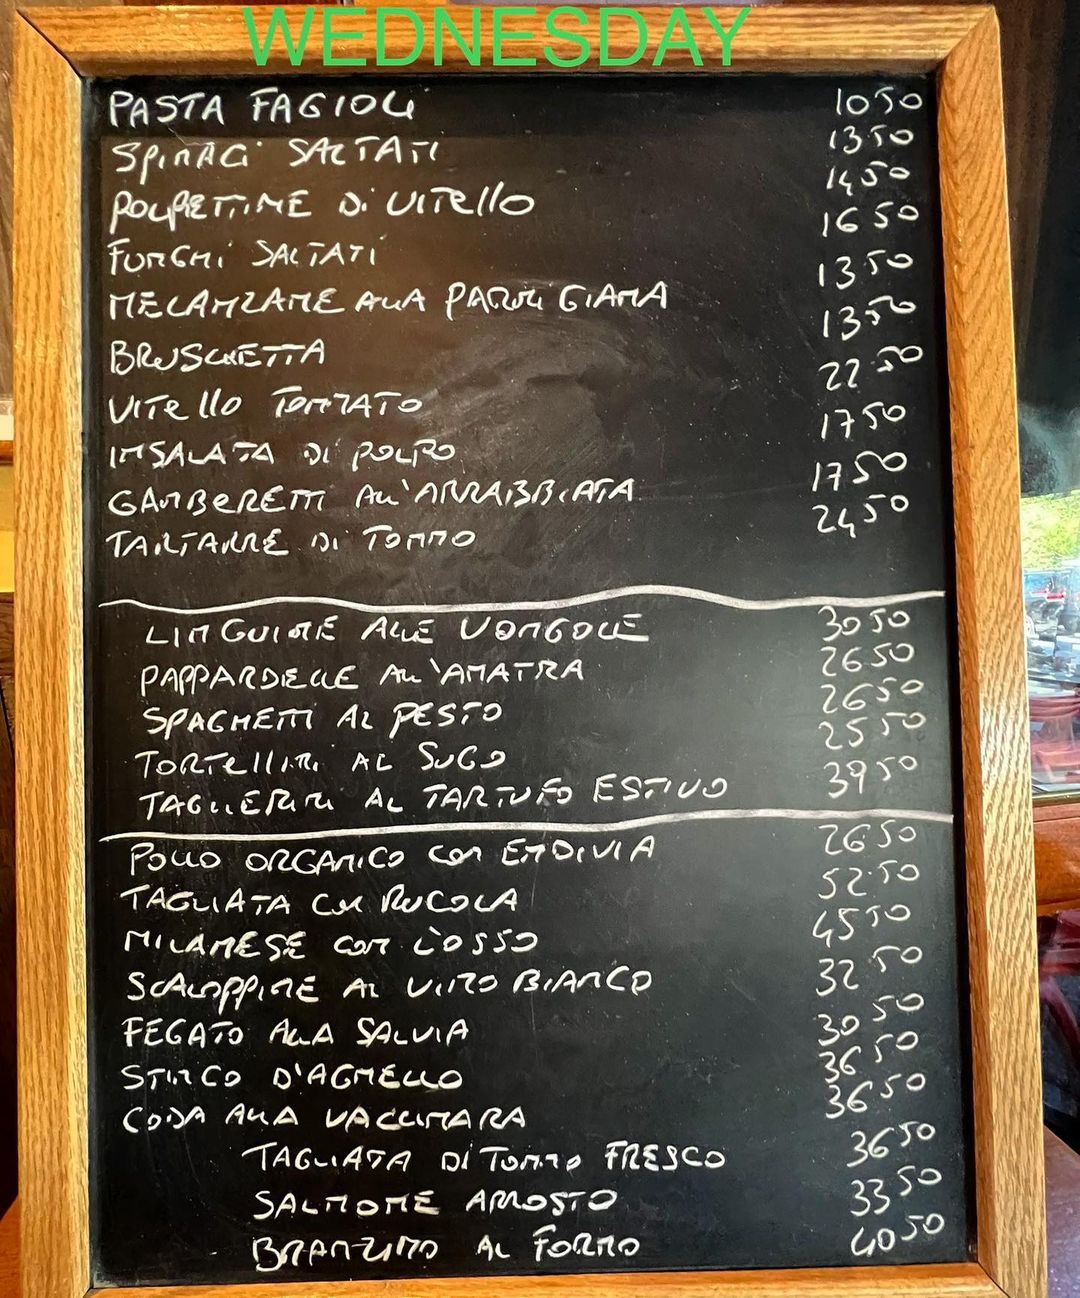 WEDNESDAY
PASTA FAGIOLI 10 50
SPINACI SALTATI 13 50
POLPETTINE Di VITello 14 50
FUNGHi SALTATi 16 50
MELANZANE ALLA PARMIGIANA 13 50
BRUSCHETTA 13 50
VITello TONNATO 22 50
INSALATA Di POLPO 17 50
GAMBERETTI All'ARRABBIATA 17 50
TARTARRE Di TONNO 24 50
LINGUINE ALLE VONGOLE 30 50
PAPPARDELLE All'AMATRA 26 50
SPAGHETTI AL PESTO 26 50
TORTelliNi AL SUGO 25 50
TAGLIERINI AL TARTUFO ESTIVO 39 50
POLLO ORGANICO CON ENDIVIA 26 50
TAGLIATA CON RUCOLA 52.50
MILANESE CON L'OSSO 45 50
SCALOPPINE AL VINO BIANCO 32 50
FEGATO ALLA SALVIA 30 50
STINCO D'AGNELLO 36 50
CODA ALLA VACCINARA 36 50
TAGLIATA Di TONNO FRESCO 36 50
SALMONE ARROSTO 33 50
BRANZINO AL FORNO 40 50